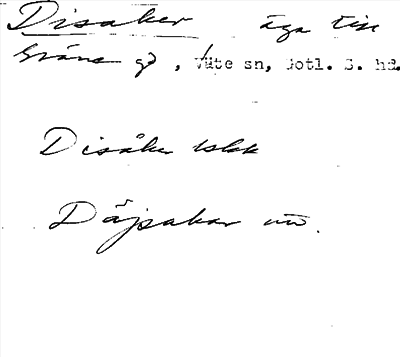 Disaker äga till
Gräne gd, Väte sn, Gotl. S. hd.
Disåker lslkk
Däjsakar uo.